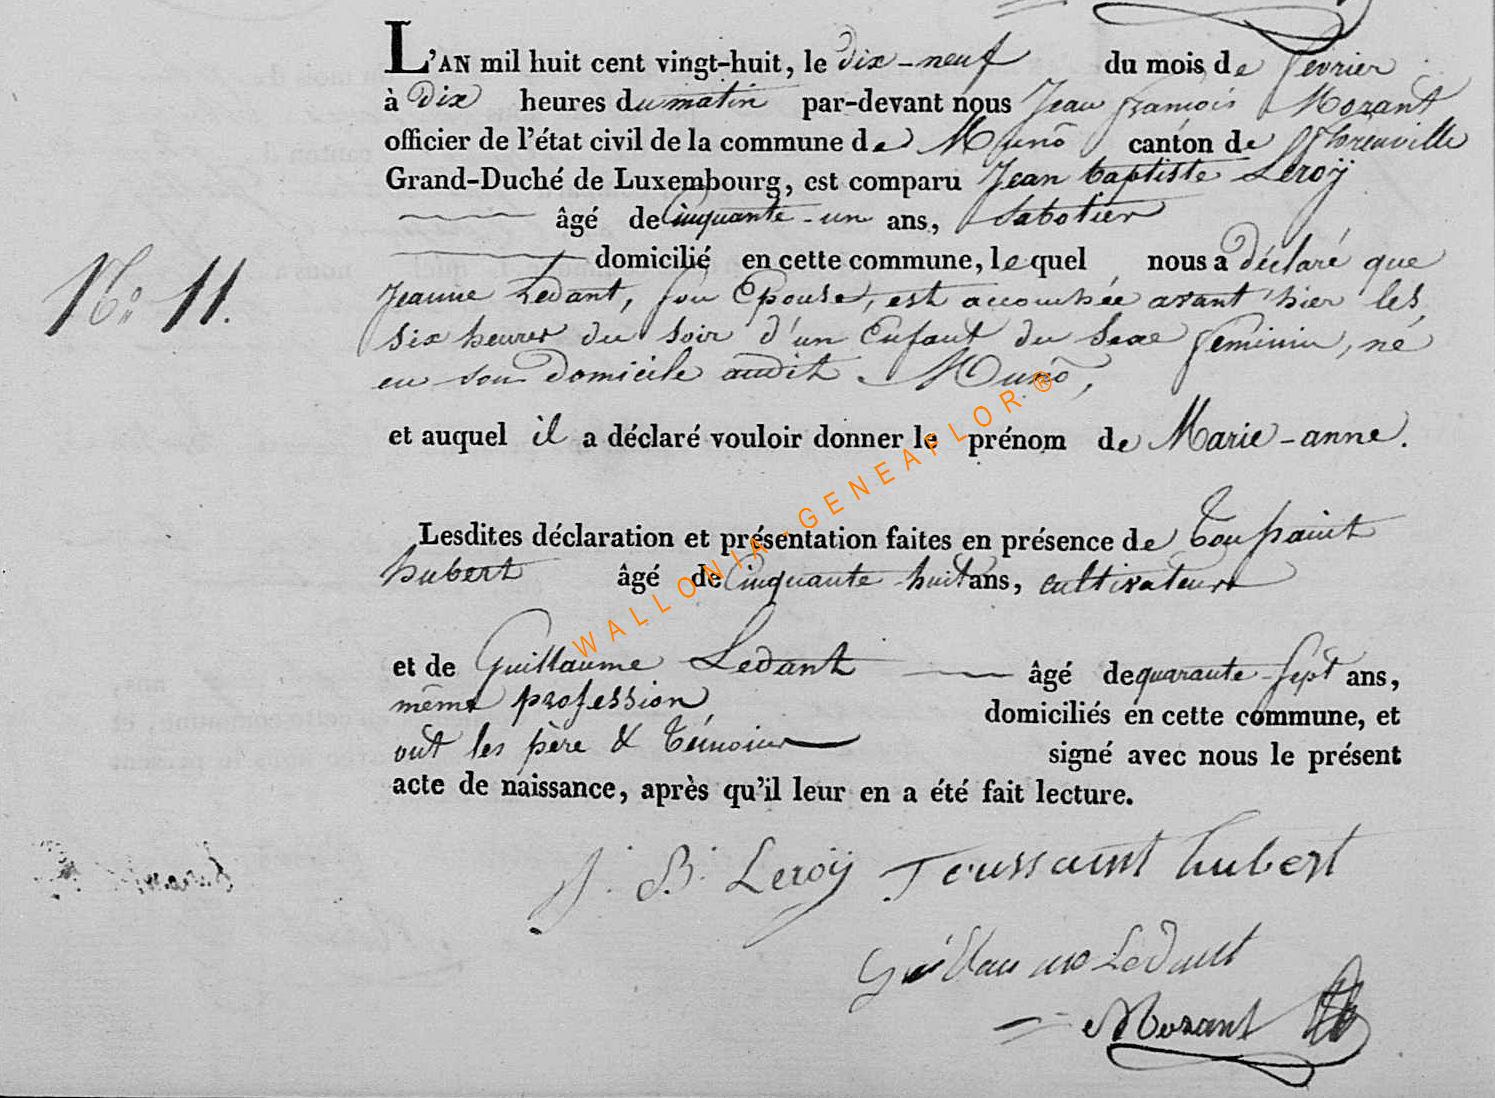 L'AN mil huit cent vingt-huit, le dix-neuf du mois de fevrier
à dix heures du matin par-devant nous Jean françois Mozant
officier de l'état civil de la commune de Munō canton de florenville
Grand-Duché de Luxembourg, est comparu Jean baptiste Leroÿ
âgé de Cinquante-un ans, Sabotier
domicilié en cette commune, lequel nous a déclaré que
N.o 11.
Jeanne Ledant, son Epouse, est accouchée avant hier les
six heures du soir d'un Enfant du Sexe feminin, né
en son domicile audit Munō,
et auquel il a déclaré vouloir donner le prénom de Marie-anne.
Lesdites déclaration et présentation faites en présence de toussaint
hubert âgé de Cinquante-huit ans, cultivateur
et de Guillaume Ledant âgé de quarante-sept ans,
même profession domiciliés en cette commune, et
ont les père & témoins signé avec nous le présent
acte de naissance, après qu'il leur en a été fait lecture.
J. B. Leroÿ Toussaint hubert
Guillaume Ledant
Mozant
WALLONIA-GENEAFLOR®